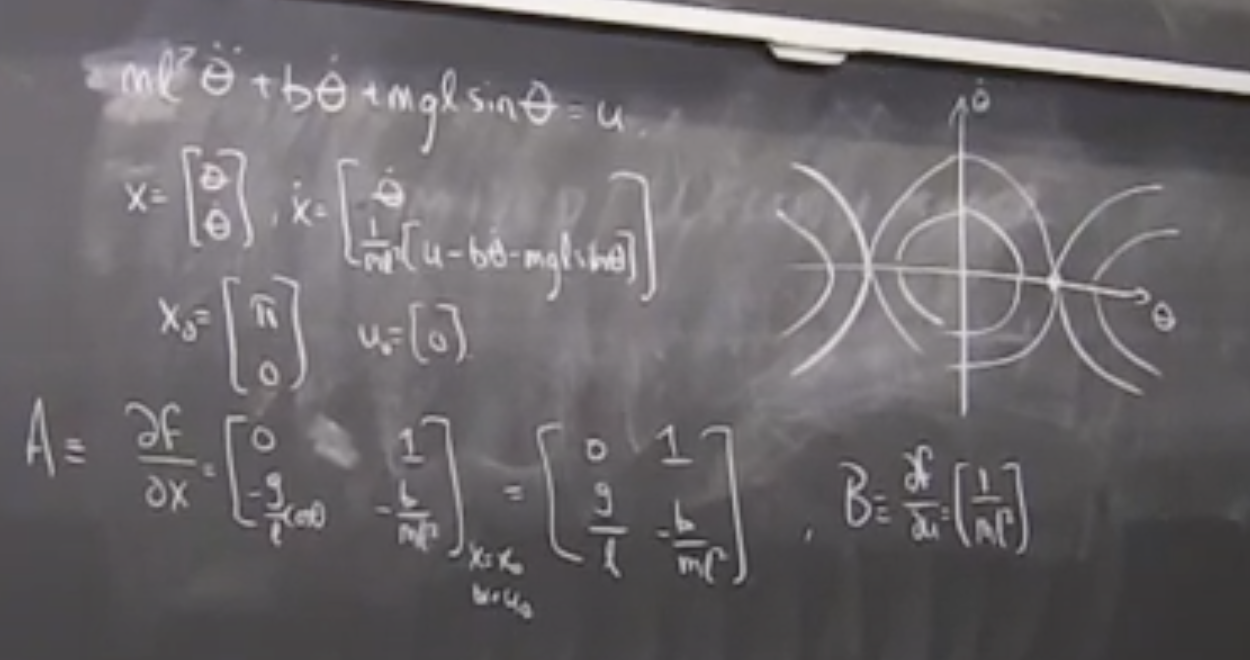 ml² θ̈ + bθ̇ + mgl sin θ = u.
x = [θ; θ̇], ẋ = [θ̇; 1/ml² [u - bθ̇ - mgl sin θ]]
x₀ = [π; 0] u₀ = [0].
A ≡ ∂f/∂x = [0 1; -g/l cos θ -b/ml²] x=x₀ u=u₀ = [0 1; g/l -b/ml²], B ≡ ∂f/∂u = [1/ml²]
θ̇
θ